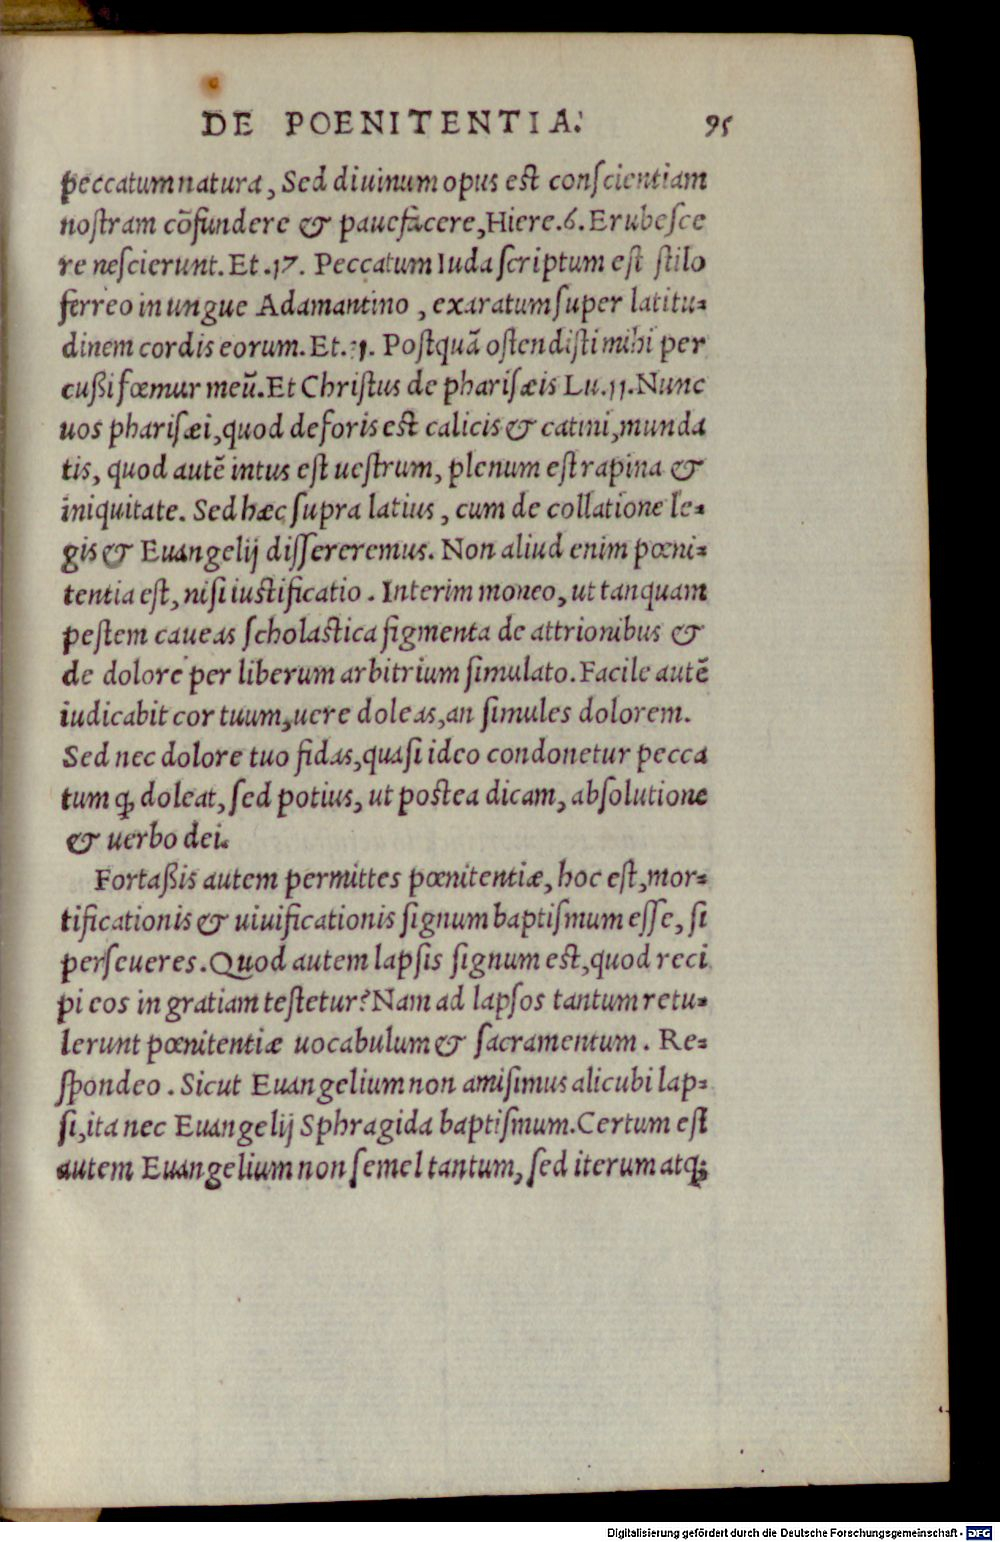 DE POENITENTIA. 95
peccatum natura, Sed diuinum opus est conscientiam
nostram cõfundere & pauefacere, Hiere.6. Erubesce
re nescierunt. Et .17. Peccatum Iuda scriptum est stilo
ferreo in ungue Adamantino, exaratum super latitu-
dinem cordis eorum. Et.31. Postquã ostendisti mihi per
cußi fœmur meũ. Et Christus de pharisæis Lu.11. Nunc
uos pharisæi, quod deforis est calicis & catini, munda
tis, quod autẽ intus est uestrum, plenum est rapina &
iniquitate. Sed hæc supra latius, cum de collatione le-
gis & Euangelij dissereremus. Non aliud enim pœni-
tentia est, nisi iustificatio. Interim moneo, ut tanquam
pestem caueas scholastica figmenta de attrionibus &
de dolore per liberum arbitrium simulato. Facile autẽ
iudicabit cor tuum, uere doleas, an simules dolorem.
Sed nec dolore tuo fidas, quasi ideo condonetur pecca
tum ꝙ doleat, sed potius, ut postea dicam, absolutione
& uerbo dei.
Fortaßis autem permittes pœnitentiæ, hoc est, mor-
tificationis & uiuificationis signum baptismum esse, si
perseueres. Quod autem lapsis signum est, quod reci
pi eos in gratiam testetur? Nam ad lapsos tantum retu-
lerunt pœnitentiæ uocabulum & sacramentum. Re-
spondeo. Sicut Euangelium non amisimus alicubi lap-
si, ita nec Euangelij Sphragida baptismum. Certum est
autem Euangelium non semel tantum, sed iterum atq;
Digitalisierung gefördert durch die Deutsche Forschungsgemeinschaft - DFG